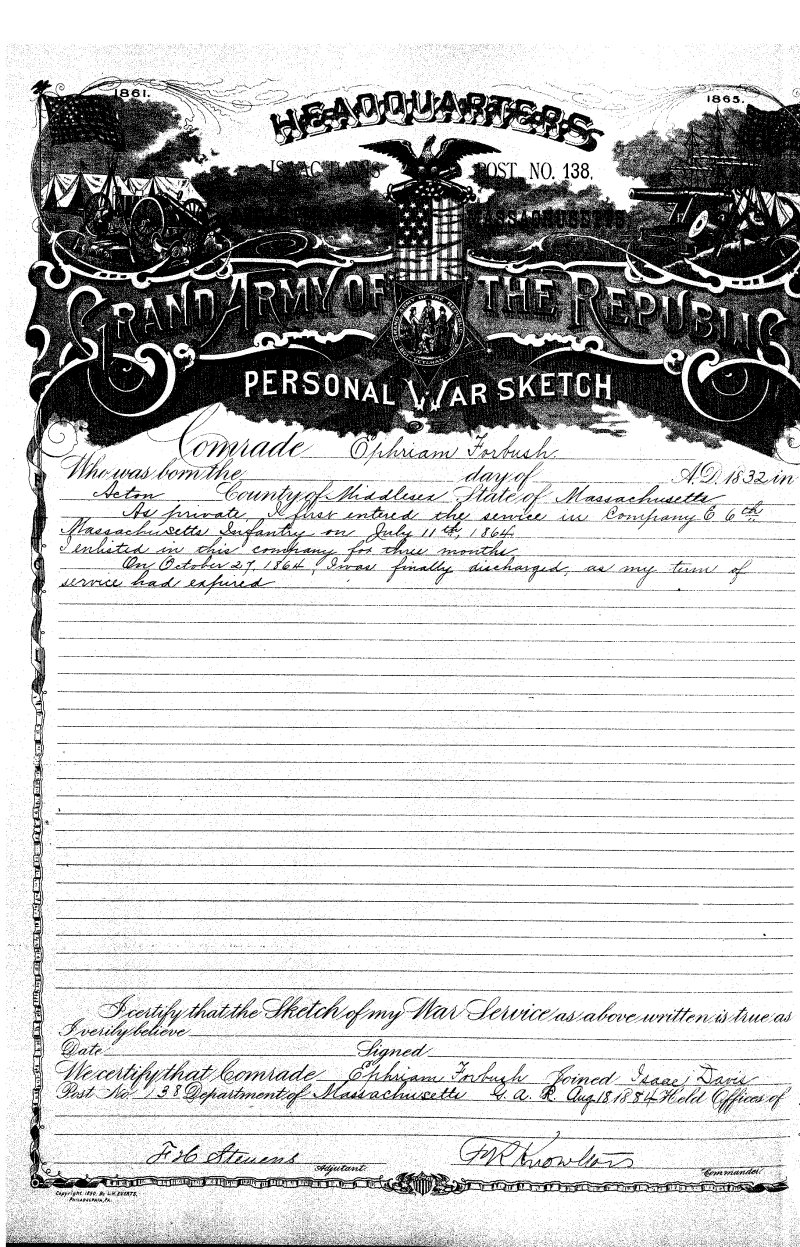 1861. 1865.
HEADQUARTERS
ISAAC DAVIS POST NO. 138,
MASSACHUSETTS
GRAND ARMY OF THE REPUBLIC
PERSONAL WAR SKETCH
Comrade Ephriam Forbush
Who was born the day of A.D. 1832 in
Acton County of Middlesex State of Massachusetts
As private, I first entered the service in Company E 6th
Massachusetts Infantry on July 11th, 1864.
I enlisted in this company for three months.
On October 27, 1864, I was finally discharged, as my term of
service had expired
I certify that the Sketch of my War Service as above written is true as
I verily believe
Date Signed
We certify that Comrade Ephriam Forbush Joined Isaac Davis
Post No. 138 Department of Massachusetts G. A. R. Aug 18 1884 Held Offices of
F H Stevens Adjutant. F R Knowlton Commander.
Copyright, 1890, By L.H. EVERTS,
PHILADELPHIA, PA.